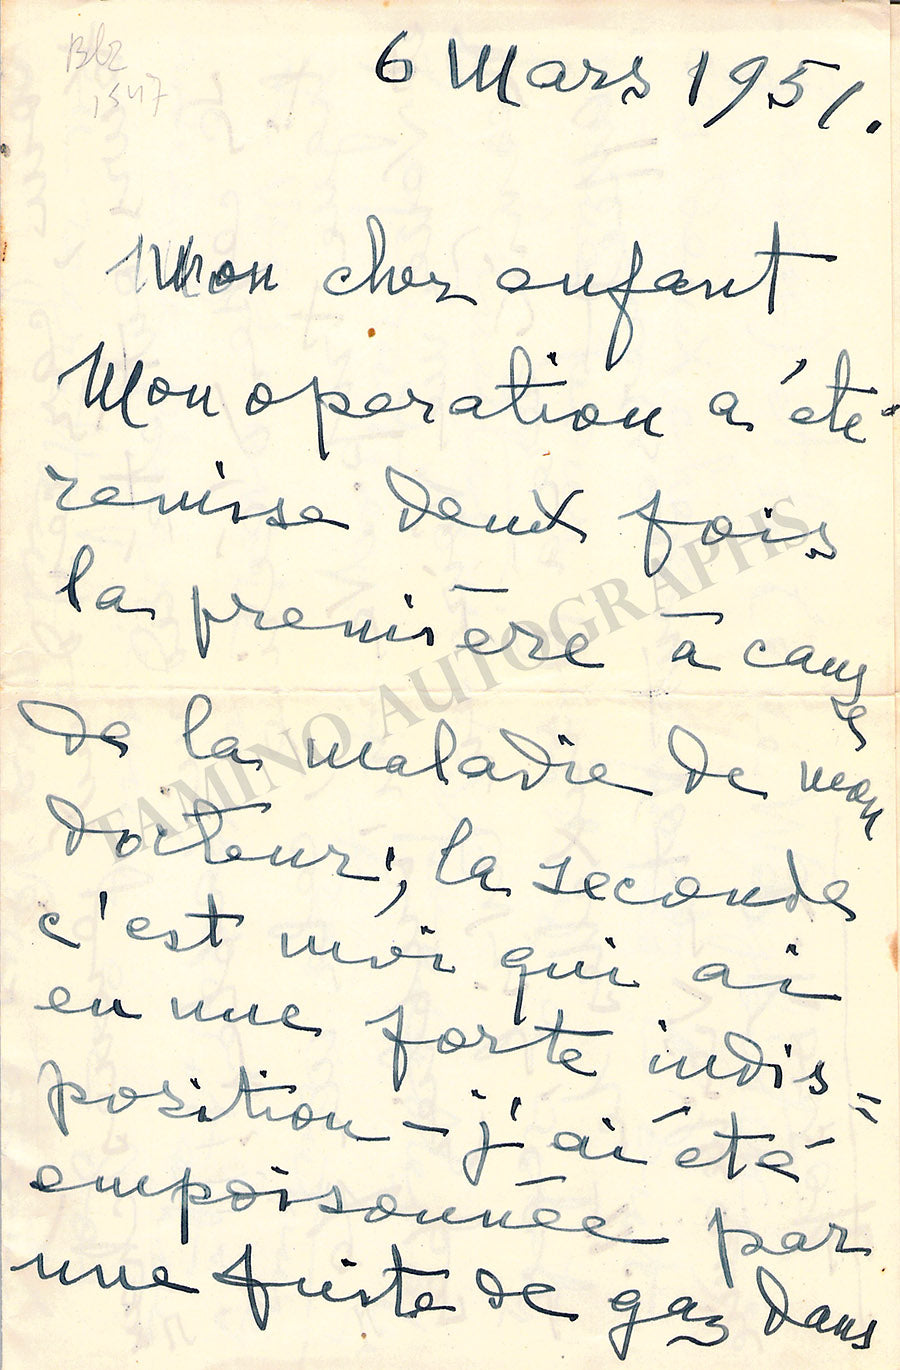 6 Mars 1951.
Mon cher enfant
Mon operation a été
remise deux fois
la première à cause
de la maladie de mon
docteur; la seconde
c'est moi qui ai
eu une forte indis=
position - j'ai été
empoisonnée par
une fuite de gaz dans
TAMINO AUTOGRAPHS